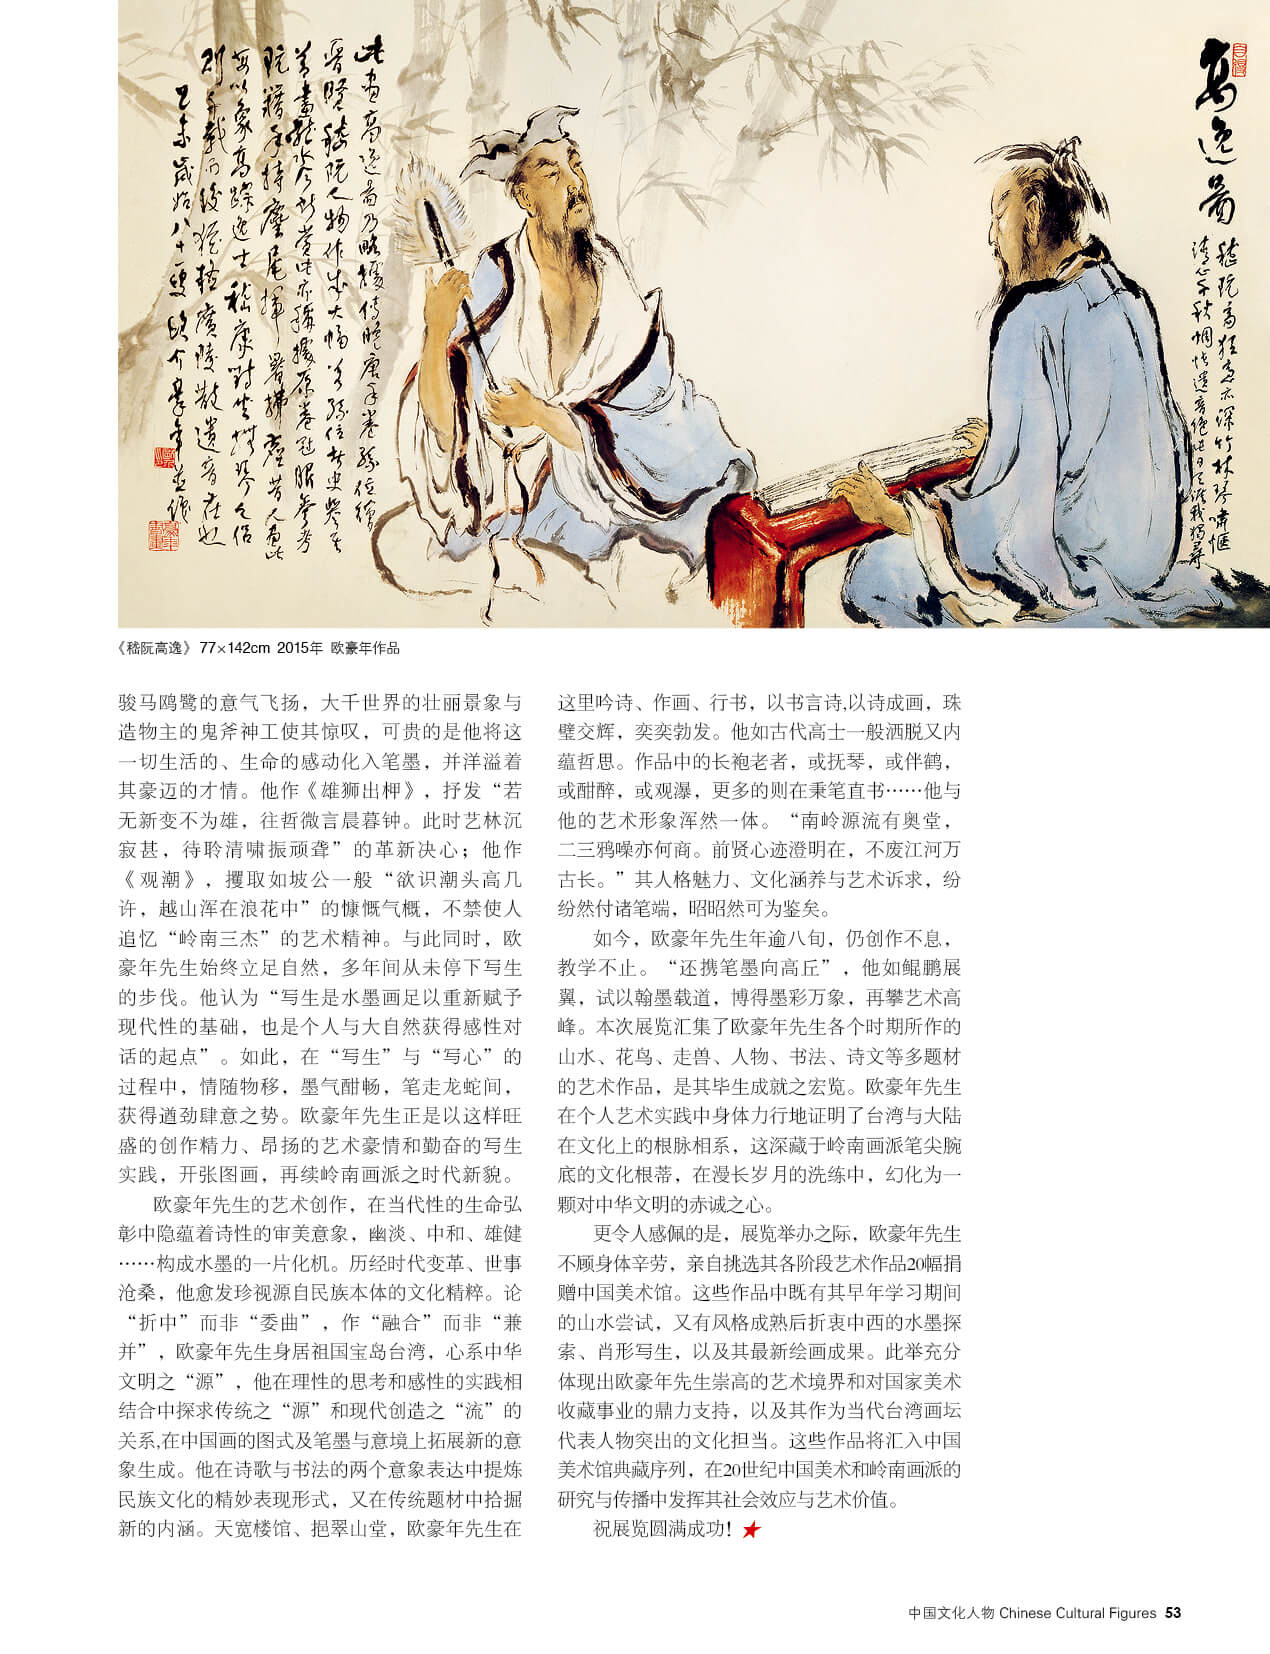 高逸圖
《嵇阮高逸》 77×142cm 2015年 欧豪年作品
骏马鸥鹭的意气飞扬，大千世界的壮丽景象与
造物主的鬼斧神工使其惊叹，可贵的是他将这
一切生活的、生命的感动化入笔墨，并洋溢着
其豪迈的才情。他作《雄狮出柙》，抒发“若
无新变不为雄，往哲微言晨暮钟。此时艺林沉
寂甚，待聆清啸振顽聋”的革新决心；他作
《观潮》，攫取如坡公一般“欲识潮头高几
许，越山浑在浪花中”的慷慨气概，不禁使人
追忆“岭南三杰”的艺术精神。与此同时，欧
豪年先生始终立足自然，多年间从未停下写生
的步伐。他认为“写生是水墨画足以重新赋予
现代性的基础，也是个人与大自然获得感性对
话的起点”。如此，在“写生”与“写心”的
过程中，情随物移，墨气酣畅，笔走龙蛇间，
获得遒劲肆意之势。欧豪年先生正是以这样旺
盛的创作精力、昂扬的艺术豪情和勤奋的写生
实践，开张图画，再续岭南画派之时代新貌。
欧豪年先生的艺术创作，在当代性的生命弘
彰中隐蕴着诗性的审美意象，幽淡、中和、雄健
……构成水墨的一片化机。历经时代变革、世事
沧桑，他愈发珍视源自民族本体的文化精粹。论
“折中”而非“委曲”，作“融合”而非“兼
并”，欧豪年先生身居祖国宝岛台湾，心系中华
文明之“源”，他在理性的思考和感性的实践相
结合中探求传统之“源”和现代创造之“流”的
关系,在中国画的图式及笔墨与意境上拓展新的意
象生成。他在诗歌与书法的两个意象表达中提炼
民族文化的精妙表现形式，又在传统题材中拾掘
新的内涵。天宽楼馆、挹翠山堂，欧豪年先生在
这里吟诗、作画、行书，以书言诗,以诗成画，珠
璧交辉，奕奕勃发。他如古代高士一般洒脱又内
蕴哲思。作品中的长袍老者，或抚琴，或伴鹤，
或酣醉，或观瀑，更多的则在秉笔直书……他与
他的艺术形象浑然一体。“南岭源流有奥堂，
二三鸦噪亦何商。前贤心迹澄明在，不废江河万
古长。”其人格魅力、文化涵养与艺术诉求，纷
纷然付诸笔端，昭昭然可为鉴矣。
如今，欧豪年先生年逾八旬，仍创作不息，
教学不止。“还携笔墨向高丘”，他如鲲鹏展
翼，试以翰墨载道，博得墨彩万象，再攀艺术高
峰。本次展览汇集了欧豪年先生各个时期所作的
山水、花鸟、走兽、人物、书法、诗文等多题材
的艺术作品，是其毕生成就之宏览。欧豪年先生
在个人艺术实践中身体力行地证明了台湾与大陆
在文化上的根脉相系，这深藏于岭南画派笔尖腕
底的文化根蒂，在漫长岁月的洗练中，幻化为一
颗对中华文明的赤诚之心。
更令人感佩的是，展览举办之际，欧豪年先生
不顾身体辛劳，亲自挑选其各阶段艺术作品20幅捐
赠中国美术馆。这些作品中既有其早年学习期间
的山水尝试，又有风格成熟后折衷中西的水墨探
索、肖形写生，以及其最新绘画成果。此举充分
体现出欧豪年先生崇高的艺术境界和对国家美术
收藏事业的鼎力支持，以及其作为当代台湾画坛
代表人物突出的文化担当。这些作品将汇入中国
美术馆典藏序列，在20世纪中国美术和岭南画派的
研究与传播中发挥其社会效应与艺术价值。
祝展览圆满成功！
中国文化人物 Chinese Cultural Figures 53